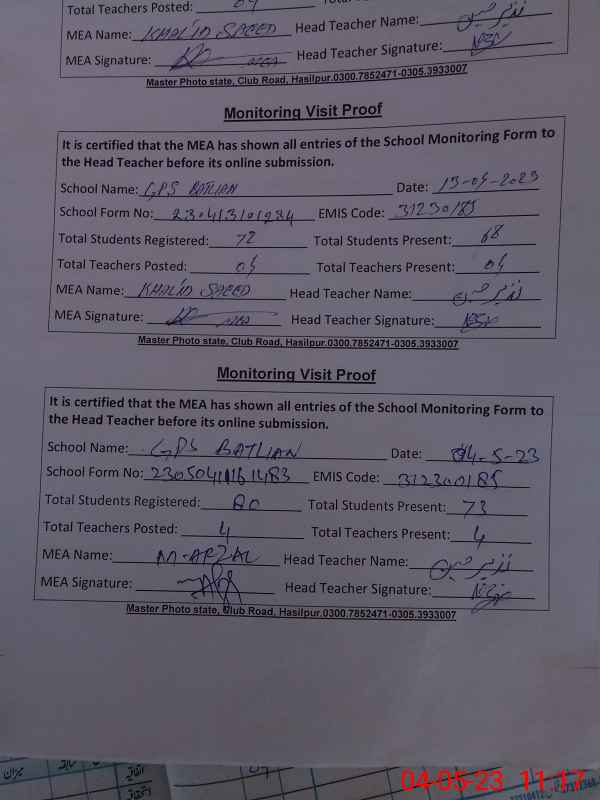 Total Teachers Posted: 04
MEA Name: KHALID SAEED Head Teacher Name: نذیر حسین
MEA Signature: Head Teacher Signature:
Master Photo state, Club Road, Hasilpur.0300.7852471-0305.3933007
Monitoring Visit Proof
It is certified that the MEA has shown all entries of the School Monitoring Form to
the Head Teacher before its online submission.
School Name: GPS BATLIAN Date: 13-04-2023
School Form No: 230413101284 EMIS Code: 31230185
Total Students Registered: 72 Total Students Present: 68
Total Teachers Posted: 04 Total Teachers Present: 04
MEA Name: KHALID SAEED Head Teacher Name: نذیر حسین
MEA Signature: Head Teacher Signature:
Master Photo state, Club Road, Hasilpur.0300.7852471-0305.3933007
Monitoring Visit Proof
It is certified that the MEA has shown all entries of the School Monitoring Form to
the Head Teacher before its online submission.
School Name: GPS BATLIAN Date: 04-5-23
School Form No: EMIS Code: 31230185
Total Students Registered: 80 Total Students Present: 73
Total Teachers Posted: 4 Total Teachers Present: 4
MEA Name: M-AFZAL Head Teacher Name: نذیر حسین
MEA Signature: Head Teacher Signature:
Master Photo state, Club Road, Hasilpur.0300.7852471-0305.3933007
04-05-23 11:17